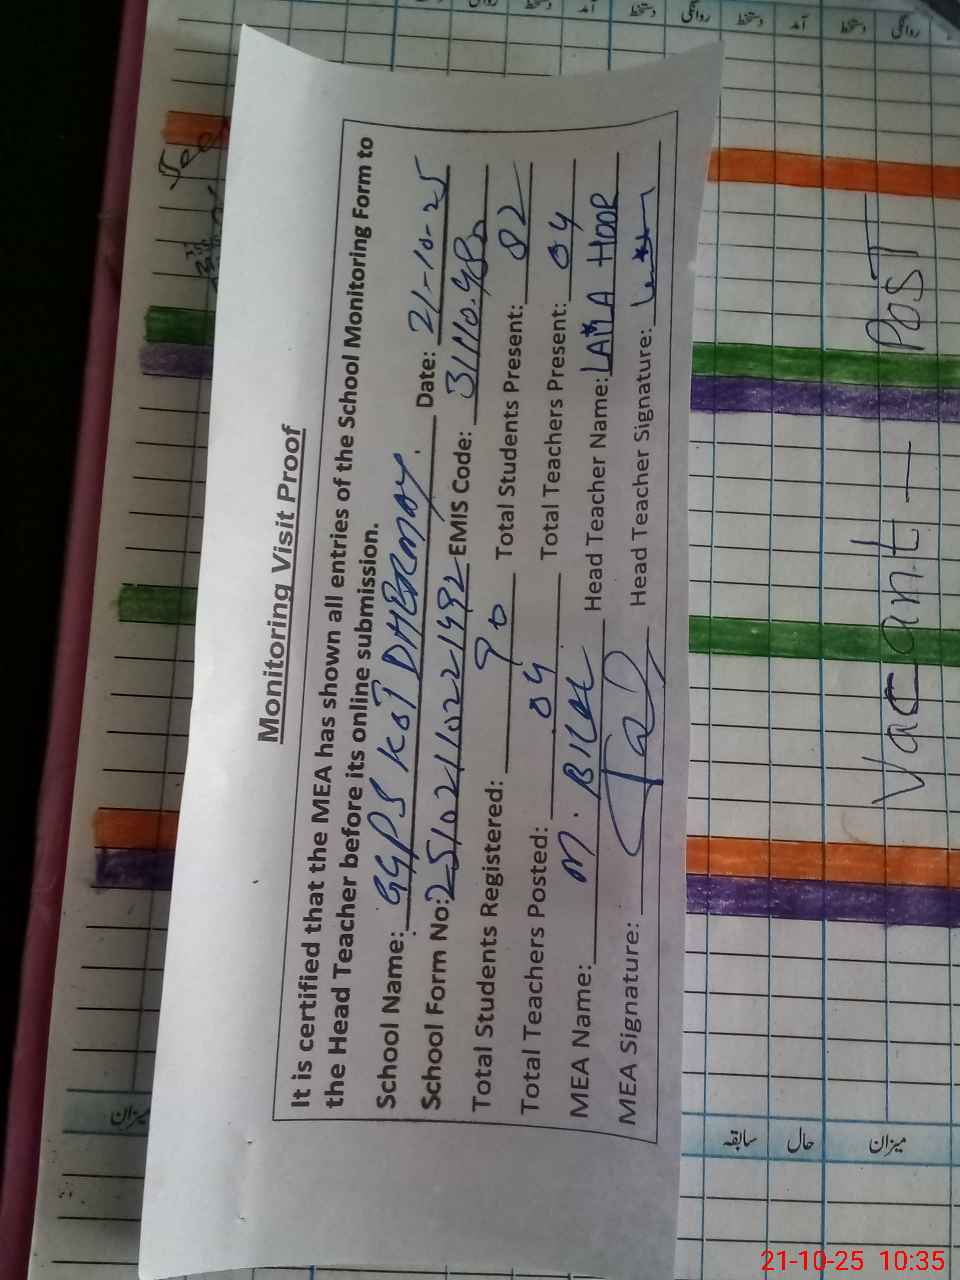 Monitoring Visit Proof
It is certified that the MEA has shown all entries of the School Monitoring Form to
the Head Teacher before its online submission.
School Name: GGPS KOT DHERMAY. Date: 21-10-25
School Form No: 25102110221492 EMIS Code:
Total Students Registered: 90 Total Students Present: 82
Total Teachers Posted: 04 Total Teachers Present: 04
MEA Name: M. BILAL Head Teacher Name: HOOR
MEA Signature: Head Teacher Signature:
Vacant - POST
روانگی دستخط آمد دستخط روانگی دستخط آمد دستخط روانگی
میزان
سابقہ حال میزان
21-10-25 10:35